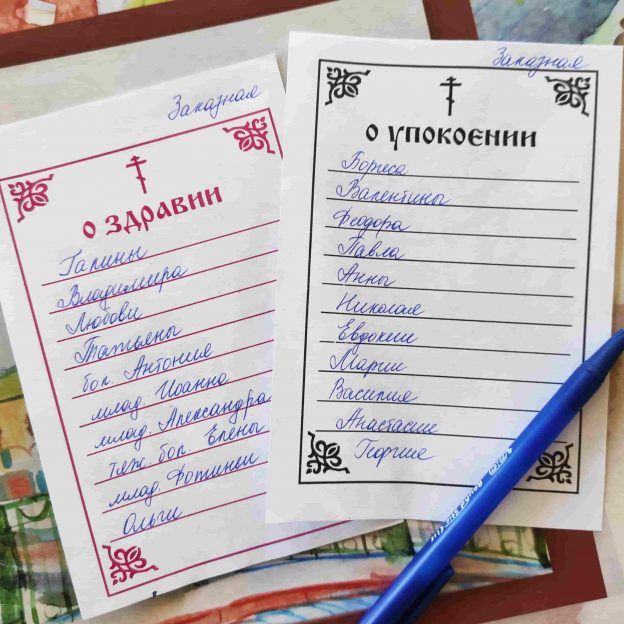 Заказная
о здравии
Галины
Владимира
Любови
Татьяны
бол. Антония
млад. Иоанна
млад. Александра
тяж. бол. Елены
млад. Фотинии
Ольги
Заказная
о упокоении
Бориса
Валентины
Феодора
Павла
Анны
Николая
Евдокии
Марии
Василия
Анастасие
Георгие